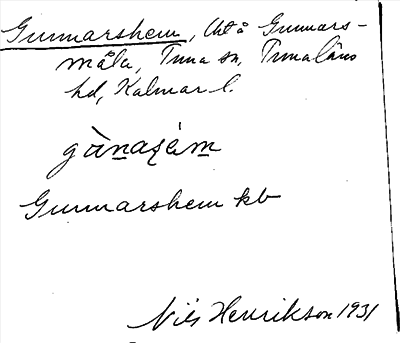 Gunnarshem, Uht å Gunnars-
måla, Tuna sn, Tunaläns
hd, Kalmar l.
gànaʂém
Gunnarshem kb
Nils Henrikson 1931